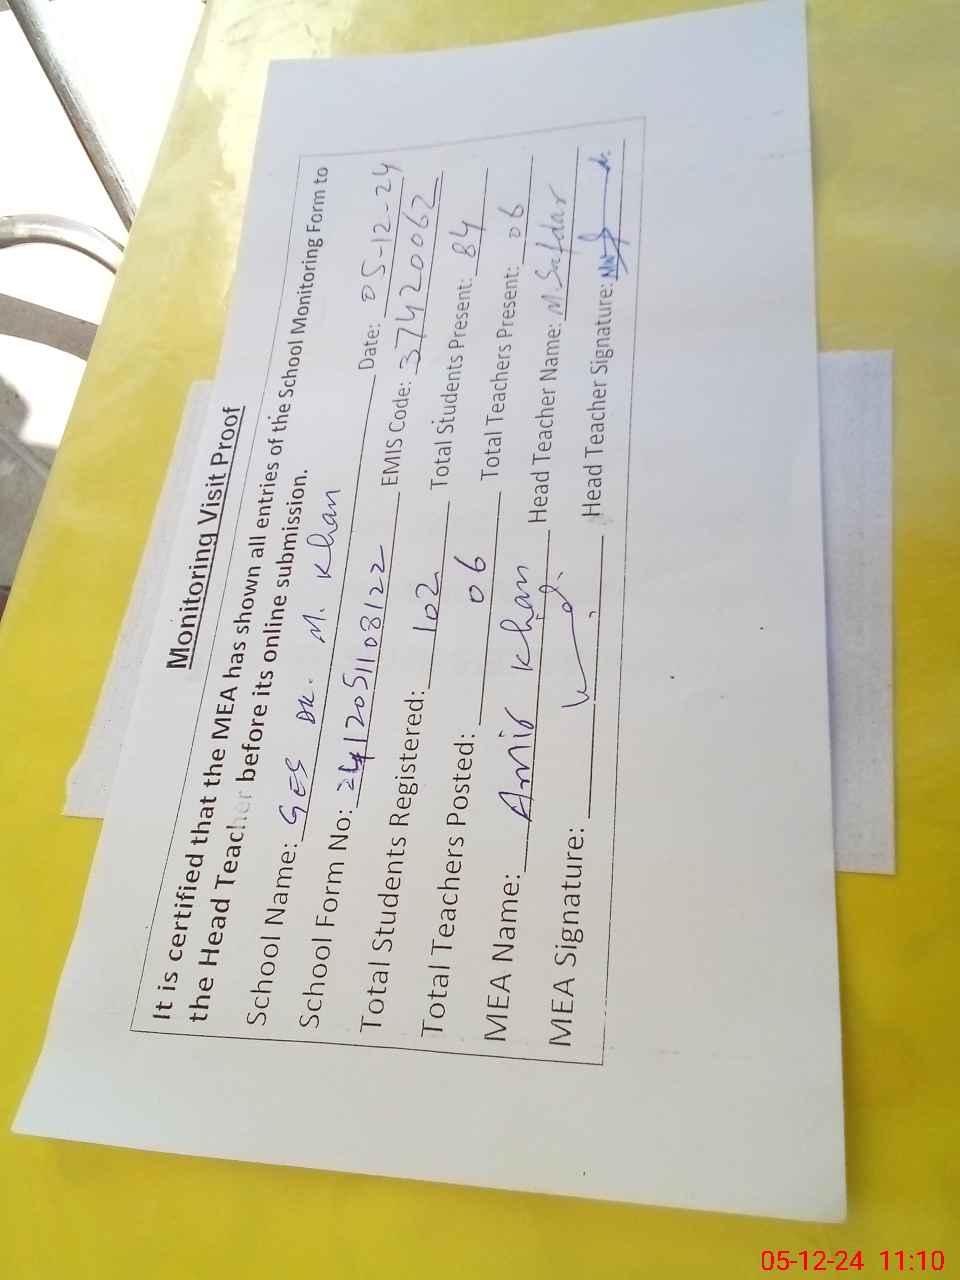 Monitoring Visit Proof
It is certified that the MEA has shown all entries of the School Monitoring Form to
the Head Teacher before its online submission.
School Name: GES DK. M. Khan Date: 05-12-24
School Form No: 2412051108122 EMIS Code: 37420062
Total Students Registered: 102 Total Students Present: 84
Total Teachers Posted: 06 Total Teachers Present: 06
MEA Name: Amir Khan Head Teacher Name: M. Safdar
MEA Signature: Head Teacher Signature:
05-12-24 11:10